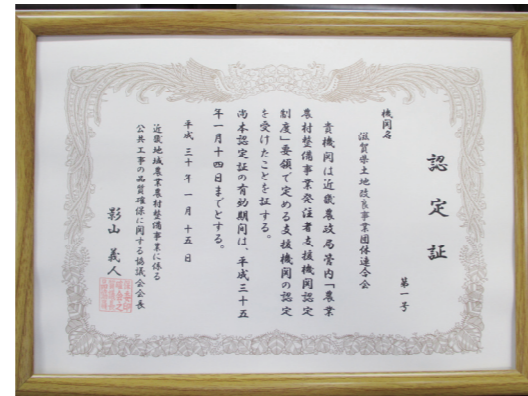 認定証
第一号
機関名
滋賀県土地改良事業団体連合会
貴機関は近畿農政局管内「農業
農村整備事業発注者支援機関認定
制度」要領で定める支援機関の認定
を受けたことを証する。
尚本認定証の有効期間は、平成三十五
年一月十四日までとする。
平成三十年一月十五日
近畿地域農業農村整備事業に係る
公共工事の品質確保に関する協議会会長
影山義人